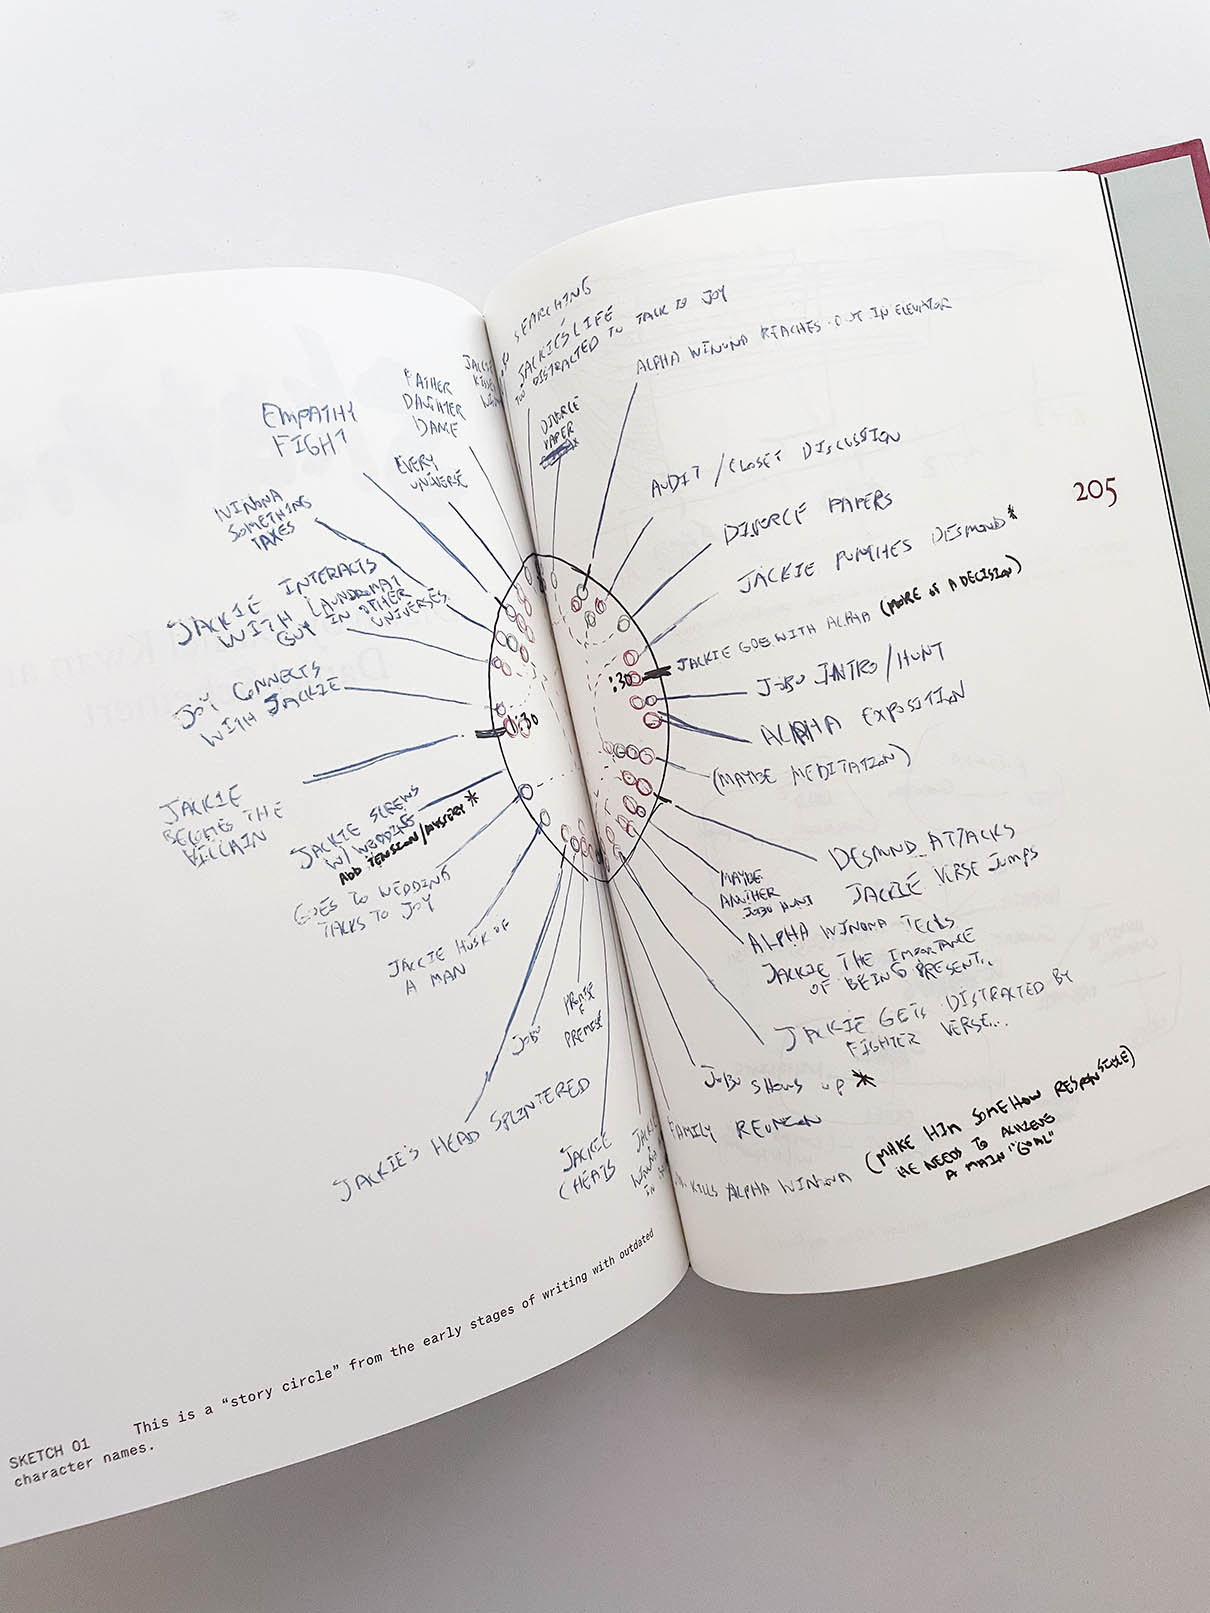 SEARCHING
JACKIE'S LIFE
TOO DISTRACTED TO TALK TO JOY
ALPHA WINONA REACHES OUT IN ELEVATOR
DIVERCE
PAPER
AUDIT / CLOSET DISCUSSION
DIVERCE PAPERS
JACKIE PUNCHES DESMOND*
JACKIE GOES WITH ALPHA (MORE OF A DECISION)
:30
JOBU INTRO/HUNT
ALPHA EXPOSITION
(MAYBE MEDITATION)
DESMOND ATTACKS
JACKIE VERSE JUMPS
MAYBE
ANOTHER
JOBU HUNT
ALPHA WINONA TELLS
JACKIE THE IMPORTANCE
OF BEING PRESENT..
JACKIE GETS DISTRACTED BY
FIGHTER VERSE...
JOBU SHOWS UP *
FAMILY REUNION
KILLS ALPHA WINONA (MAKE HIM SOMEHOW RESPONSIBLE)
HE NEEDS TO ACHIEVE
A MAIN "GOAL"
205
JACKIE
CHEATS
JACKIE'S HEAD SPLINTERED
PREMISE
JOBU
JACKIE HUSK OF
A MAN
GOES TO WEDDING
TALKS TO JOY
JACKIE SCREWS
W/ WEDDING
ADD TENSION/MYSTERY *
JACKIE
BECOMES THE
VILLAIN
1:30
JOY CONNECTS
WITH JACKIE
JACKIE INTERACTS
WITH LAUNDROMAT
GUY IN OTHER
UNIVERSES
WINONA
SOMETHING
TAXES
EMPATHY
FIGHT
EVERY
UNIVERSE
FATHER
DAUGHTER
DANCE
SKETCH 01 This is a “story circle” from the early stages of writing with outdated
character names.